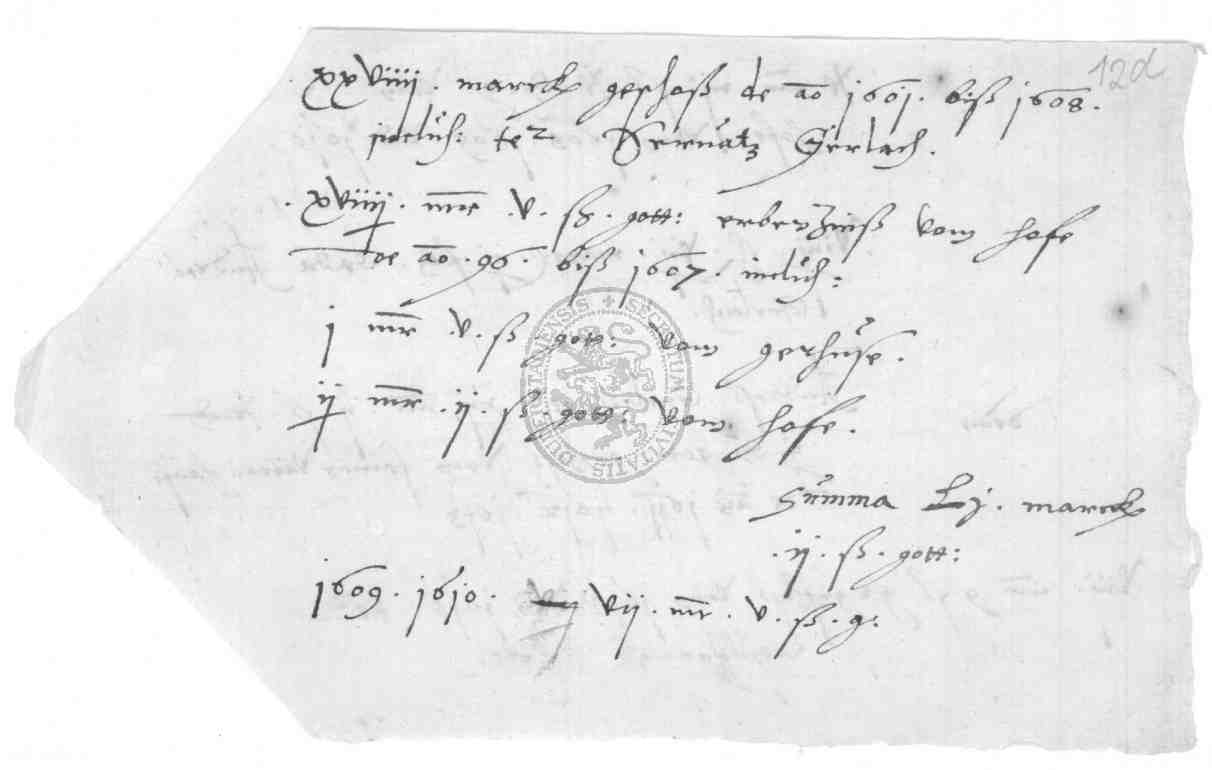 12d
xxviiij. marck geschoß de aō 1601. biß 1608.
inclus: Servatz Gerlach.
.xviiij. mr .v. ß. gott: erbezinß vom hofe
de aō .96. biß 1607. inclus:
j mr .v. ß gott: vom huse.
ij mr .ij. ß. gott: vom hofe.
Summa Lj. marck
.ij. ß. gott:
1609. 1610. vij. mr. v. ß. g:
SECRETUM CIVITATIS DUDERSTATENSIS